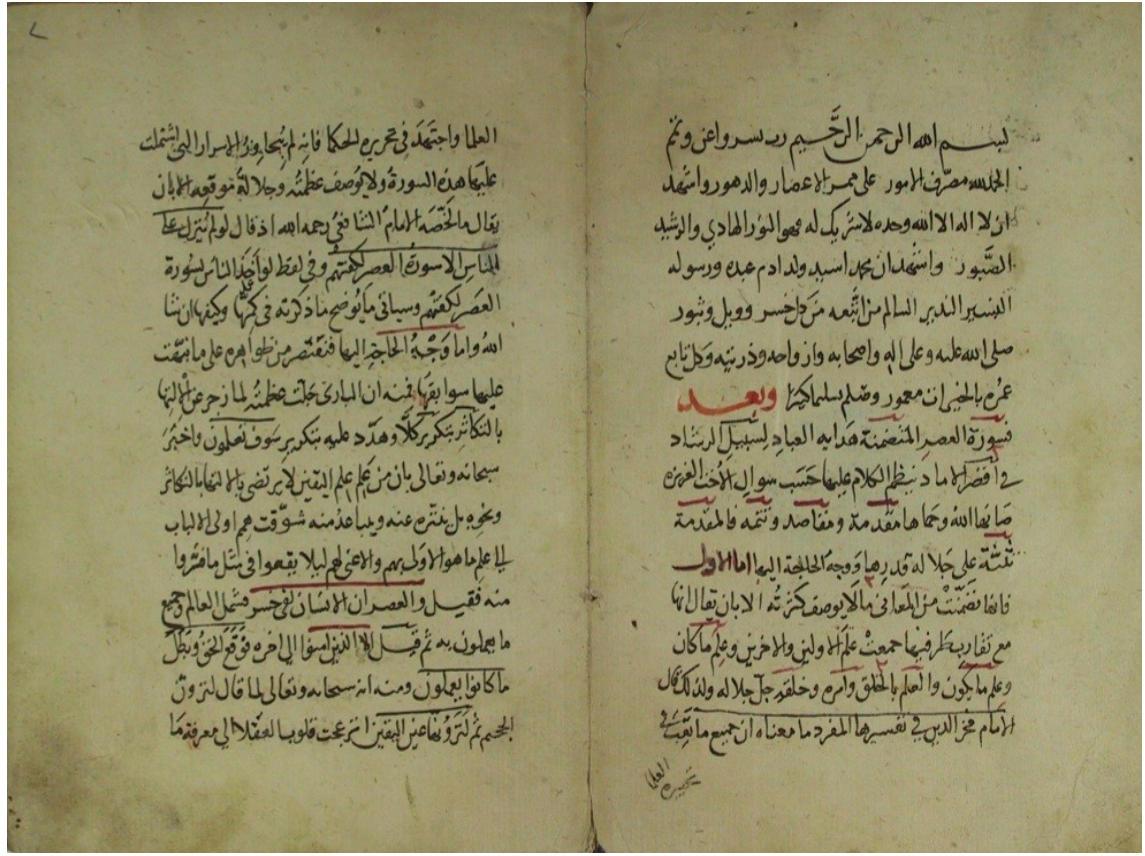 بسم الله الرحمن الرحيم رب يسر واعن وتمم
الحمد لله مصرف الامور على ممر الاعصار والدهور واشهد
ان لا اله الا الله وحده لا شريك له فهو النور الهادي والرشيد
الصَّبور واشهد ان محمد اسيد ولد ادم عبده ورسوله
البشير النذير السالم من اتبعه من كل خسر وويل وثبور
صلى الله عليه وعلى اله واصحابه وازواجه وذريته وكل تابع
عمره بالخيرات معمور وسلم تسليما كثيرا وبعد
فسورة العصر المتضمنة هداية العباد لسبيل الرشاد
في اقصر الاماد ينظم الكلام عليها حسب سوال الأخت العزيزه
صانها الله وحماها مقدمة ومقاصد وتتمه فالمقدمة
على جلالة قدرها ووجه الحاجة اليها اما الاول
فانها تضمنت من المعاني ما لا يوصف كثرته الا بان يقال انها
مع تقارب طرفيها جمعت علم الاولين والاخرين وعلم ما كان
وعلم ما يكون والعلم بالخلق وامره وخلقه جل جلاله ولذلك قال
الامام فخر الدين في تفسيرها المفرد ما معناه ان جميع ما تعب في
تحريره العلما
العلما واجتهد في تحريره الحكما فانه لم يجاوز الاسرار التي اشتملت
عليها هذه السورة ولا توصف عظمته وجلالة موقعه الا بان
يقال ما لخصه الامام الشافعي رحمه الله اذ قال لو لم ينزل على
الناس الا سورة العصر لكفتهم وفي لفظ لو اخذ الناس بسورة
العصر لكفتهم وسياتي ما يوضح ما ذكرته في وكيفها ان شا
الله واما وجه الحاجة اليها فنقتصر من ظواهره على ما
عليها سوابقها فمنه ان البارئ جلت عظمته لما زجر عن الالتها
بالتكاثر بتكرير كلا وهدد عليه بتكرير سوف تعلمون واخبر
سبحانه وتعالى بان من علم علم اليقين لا يرتضى بالالتها بالتكاثر
ونحوه بل يتنزه عنه ويباعد منه شوقت همم اولى الالباب
الى علم ما هو الاولى بهم والاغنى لهم ليلا يقعوا في مثل ما
منه فقيل والعصر ان الانسان لفي خسر فشمل العالم وجميع
ما يعملون به ثم قيل الا الذين امنوا الى اخره فوقع الحق وبطل
ما كانوا يعملون ومنه انه سبحانه وتعالى لما قال لترون
الجحيم ثم لترونها عين اليقين انزعجت قلوب العقلا الى معرفة ما